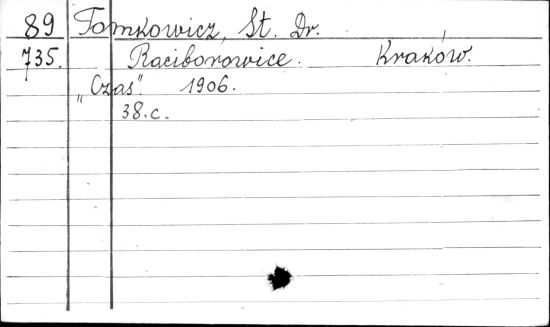 89 Tomkowicz, St. Dr.
735. Raciborowice. Kraków.
„Czas”. 1906.
38.c.